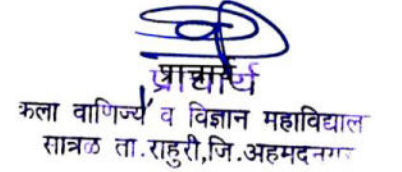 प्राचार्य
कला वाणिज्य व विज्ञान महाविद्याल
सात्रळ ता.राहुरी,जि.अहमदनगर